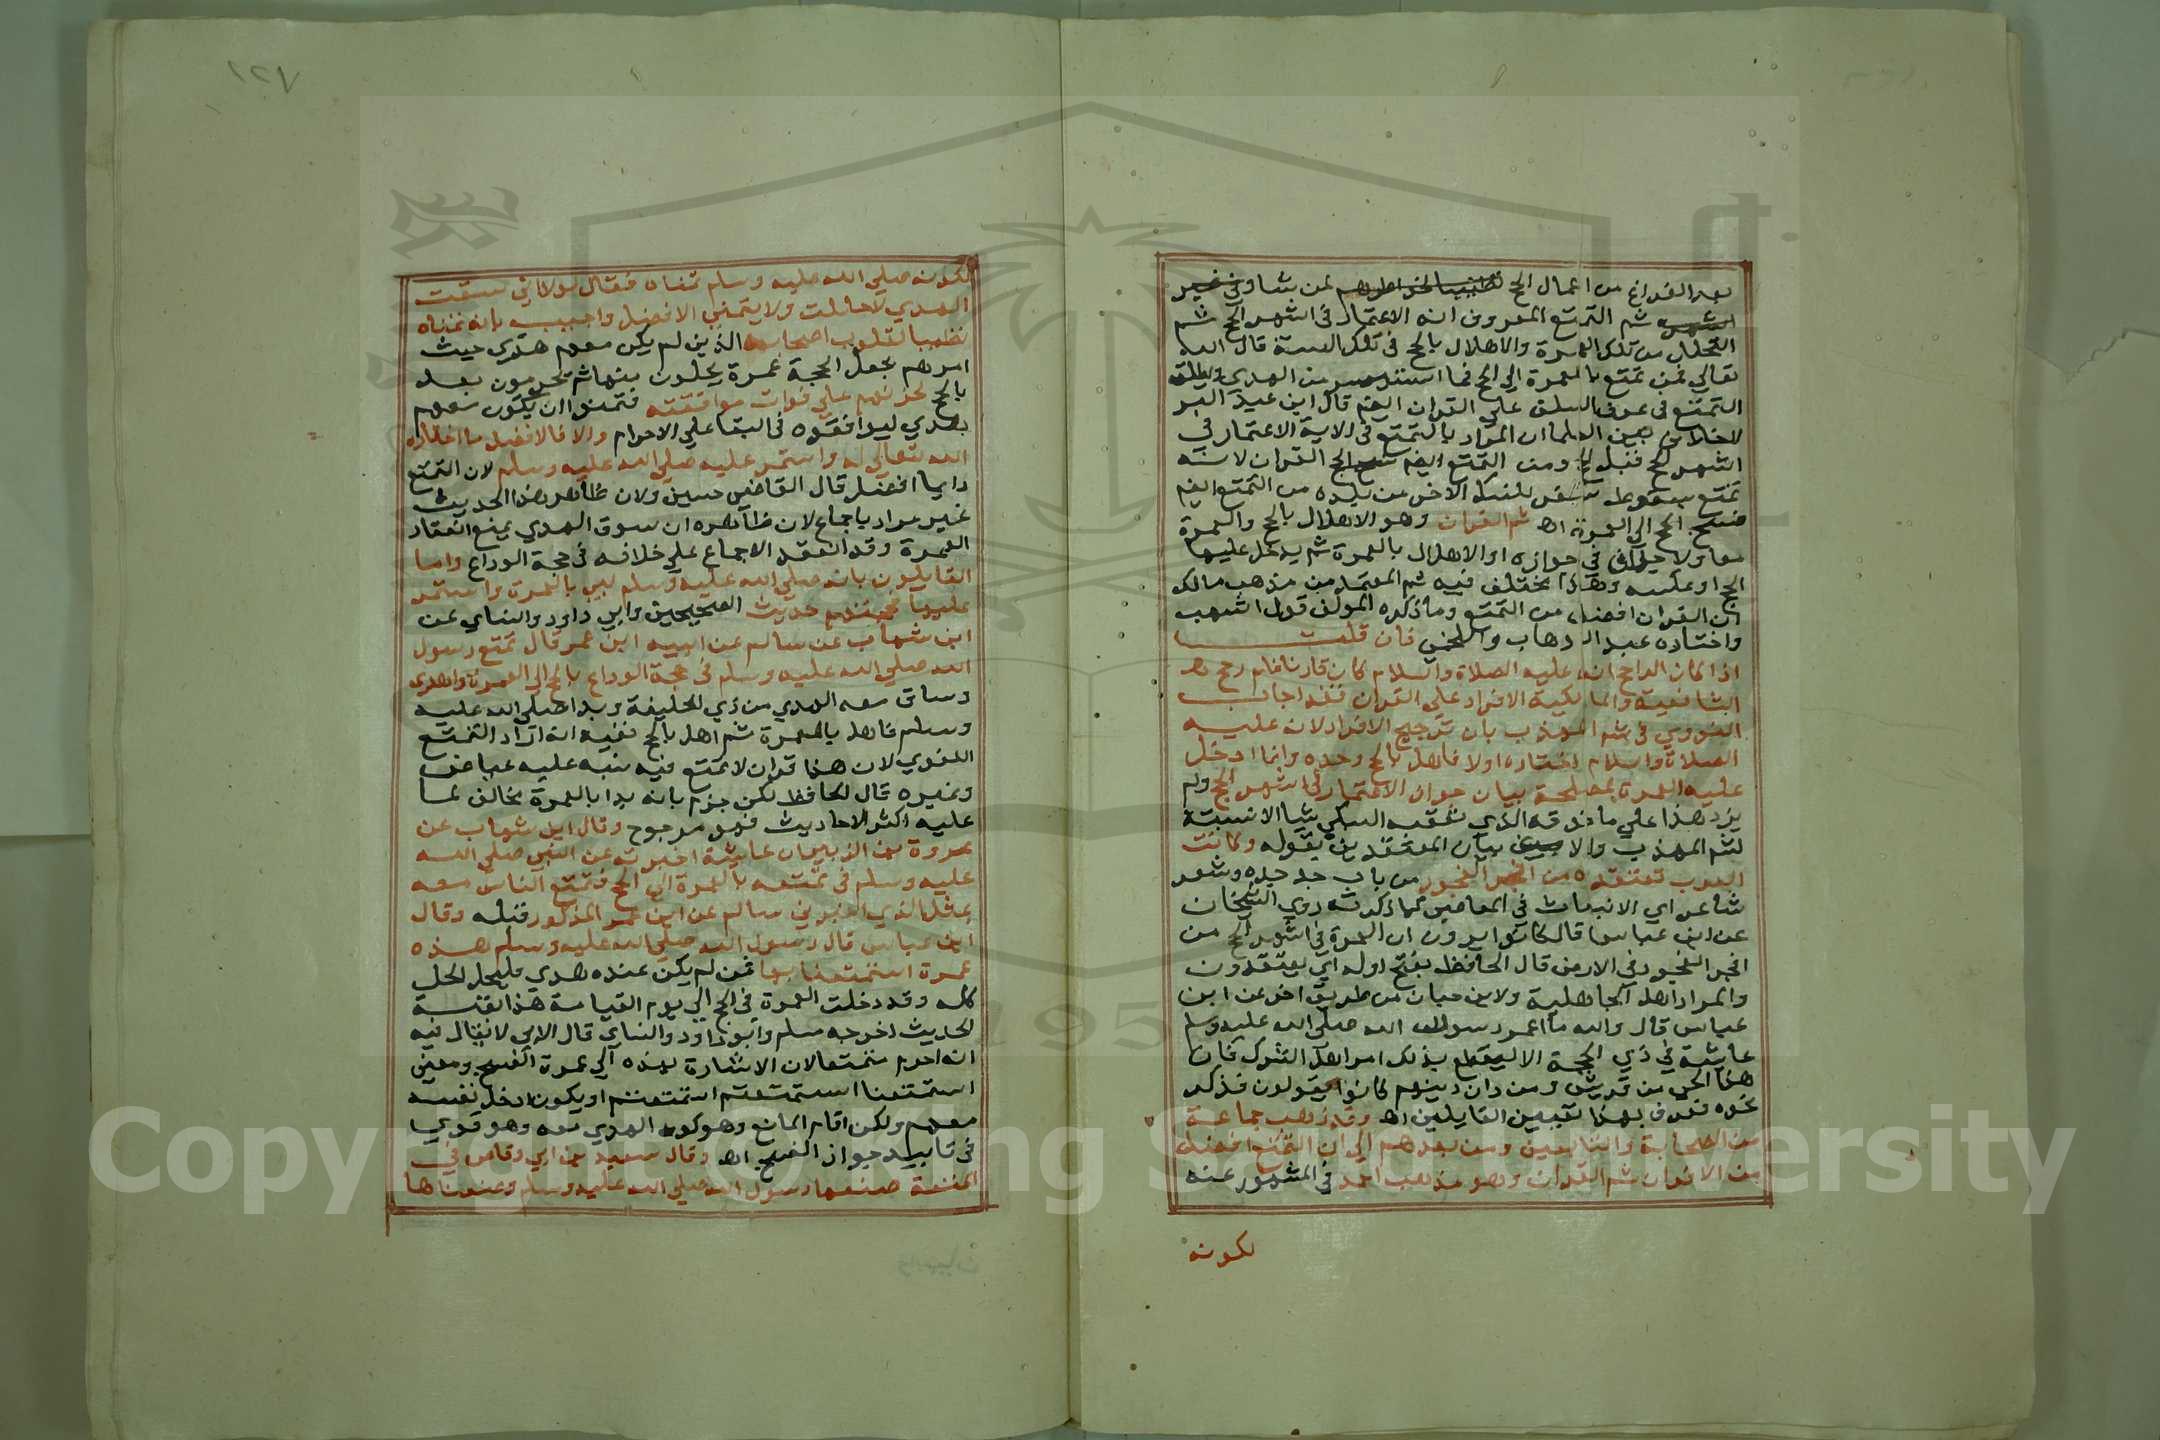 بعد الفراغ من اعمال الحج لمن شا وفي غير
اشهره ثم التمتع المعروف انه الاعتمار في اشهر الحج ثم
التحلل من تلك العمرة والاهلال بالحج في تلك السنة قال الله
تعالي فمن تمتع بالعمرة الي الحج فما استيسر من الهدي ويطلق
التمتع في عرف السلف علي القران ايضم قال ابن عبد البر
لاخلاف بين العلما ان المراد بالتمتع في الاية الاعتمار في
اشهر الحج قبل الحج ومن التمتع ايضم القران لانه
تمتع بسقوط سفر للنسك الاخر من بلده من التمتع ايضم
فسخ الحج الي العمرة اه ثم القران وهو الاهلال بالحج والعمرة
معا ولا خلاف في جوازه او الاهلال بالعمرة ثم يدخل عليها
الحج او عكسه وهذا مختلف فيه ثم المعتمد من مذهب مالك
ان القران افضل من التمتع وما ذكره المولف قول اشهب
واختاره عبد الوهاب واللخمي فان قلت
اذا كان الراجح انه عليه الصلاة والسلام كان قارنا فلم رجح
الشافعية والمالكية الافراد علي القران فقد اجاب
النووي في شم المهذب بان ترجيح الافراد لانه عليه
الصلاة والسلام اختاره اولا فاهل بالحج وحده وانما ادخل
عليه العمرة لمصلحة بيان جواز الاعتمار في اشهر الحج ولم
يزد هذا علي ما فوقه الذي تعقبه السبكي شيا الا نسبته
لشم المهذب والا بيان المعتقدين بقوله وكانت
العرب تعتقده من افجر الفجور من باب جد جده وشعر
شاعر اي الانبعاث في المعاصي كما ذكرته روي الشيخان
عن ابن عباس قال كانوا يرون ان العمرة في اشهر الحج من
افجر الفجور في الارض قال الحافظ بفتح اوله اي يعتقدون
والمراد اهل الجاهلية ولابن حبان من طريق اخر عن ابن
عباس قال والله ما اعمر رسول الله صلي الله عليه وسلم
عايشة في ذي الحجة الا ليقطع بذلك امر اهل الشرك فان
هذا الحي من قريش ومن دان دينهم كانوا يقولون فذكر
نحوه فعرف بهذا تعيين القايلين اه وقد ذهب جماعة
من الصحابة والتابعين ومن بعدهم الي ان التمتع افضل
من الافراد ثم القران وهو مذهب احمد في المشهور عنه
لكونه
لكونه صلي الله عليه وسلم تمناه فقال لولا اني سقت
الهدي لاحللت ولا يتمني الا افضل واجيب بانه تمناه
تطييبا لقلوب اصحابه الذين لم يكن معهم هدي حيث
امرهم بجعل الحجة عمرة يحلون منها ثم يحرمون بعد
بالحج لحزنهم علي فوات موافقته فتمنوا ان يكون معهم
هدي ليوافقوه في البقا علي الاحرام والا فالافضل ما اختاره
الله تعالي له واستمر عليه صلي الله عليه وسلم لان التمتع
دايما افضل قال القاضي حسين ولان ظاهر هذا الحديث
غير مراد باجماع لان ظاهره ان سوق الهدي يمنع انعقاد
العمرة وقد انعقد الاجماع علي خلافه في حجة الوداع واما
القايلون بانه صلي الله عليه وسلم لبي بالعمرة واستمر
عليها فحجتهم حديث الصحيحين وابي داود والنساي عن
ابن شهاب عن سالم عن ابيه ابن عمر قال تمتع رسول
الله صلي الله عليه وسلم في حجة الوداع بالحج الي العمرة واهدي
وساق معه الهدي من ذي الحليفة وبدا صلي الله عليه
وسلم فاهل بالعمرة ثم اهل بالحج ففيه انه اراد التمتع
اللغوي لان هذا قران لا تمتع فيه نبه عليه عياض
وغيره قال الحافظ لكن جزم بانه بدا بالعمرة مخالف لما
عليه اكثر الاحاديث فهو مرجوح وقال ابن شهاب عن
عروة بن الزبير ان عايشة اخبرته عن النبي صلي الله
عليه وسلم في تمتعه بالعمرة الي الحج فتمتع الناس معه
بمثل الذي اخبرني سالم عن ابن عمر المذكور قبله وقال
ابن عباس قال رسول الله صلي الله عليه وسلم هذه
عمرة استمتعنا بها فمن لم يكن عنده هدي فليحل الحل
كله وقد دخلت العمرة في الحج الي يوم القيامة هذا بقية
الحديث اخرجه مسلم وابو داود والنساي قال الابي لا يقال فيه
انه احرم متمتعا لان الاشارة بهذه الي عمرة الفسخ ومعني
استمتعنا استمتعتم او يكون ادخل نفسه
معهم ولكن اقام المانع وهو كون الهدي معه وهو قوي
في تاييد جواز الفسخ اه وقال سعيد بن ابي وقاص في
المتعة صنعها رسول الله صلي الله عليه وسلم وصنعناها
Copyright © King Saud University